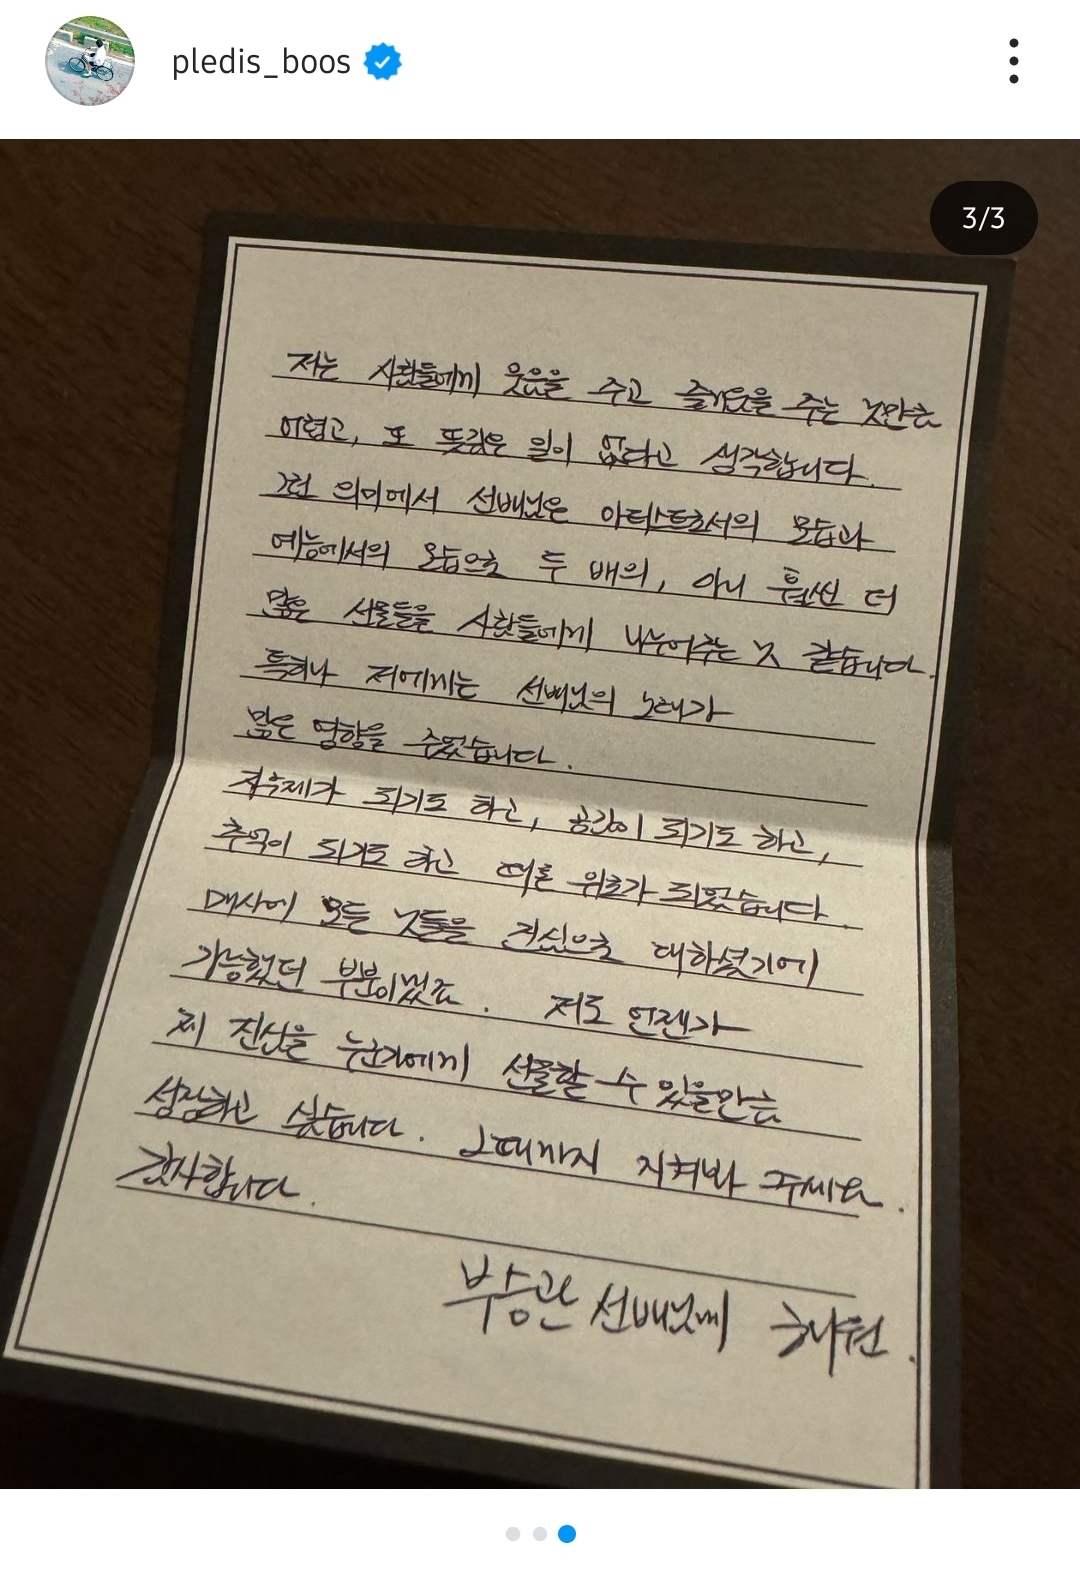 pledis_boos
3/3
저는 사람들에게 웃음을 주고 즐거움을 주는 것만큼
어렵고, 또 뜻깊은 일이 없다고 생각합니다.
그런 의미에서 선배님은 아티스트로서의 모습과
예능에서의 모습으로 두 배의, 아니 훨씬 더
많은 선물들을 사람들에게 나누어주는 것 같습니다.
특히나 저에게는 선배님의 노래가
많은 영향을 주었습니다.
자주제가 되기도 하고, 공감이 되기도 하고,
추억이 되기도 하고 때론 위로가 되었습니다.
매사에 모든 것들을 진심으로 대하셨기에
가능했던 부분이겠죠. 저도 언젠가
제 진심을 누군가에게 선물할 수 있을만큼
성장하고 싶습니다. 그때까지 지켜봐 주세요.
감사합니다.
부승관 선배님께